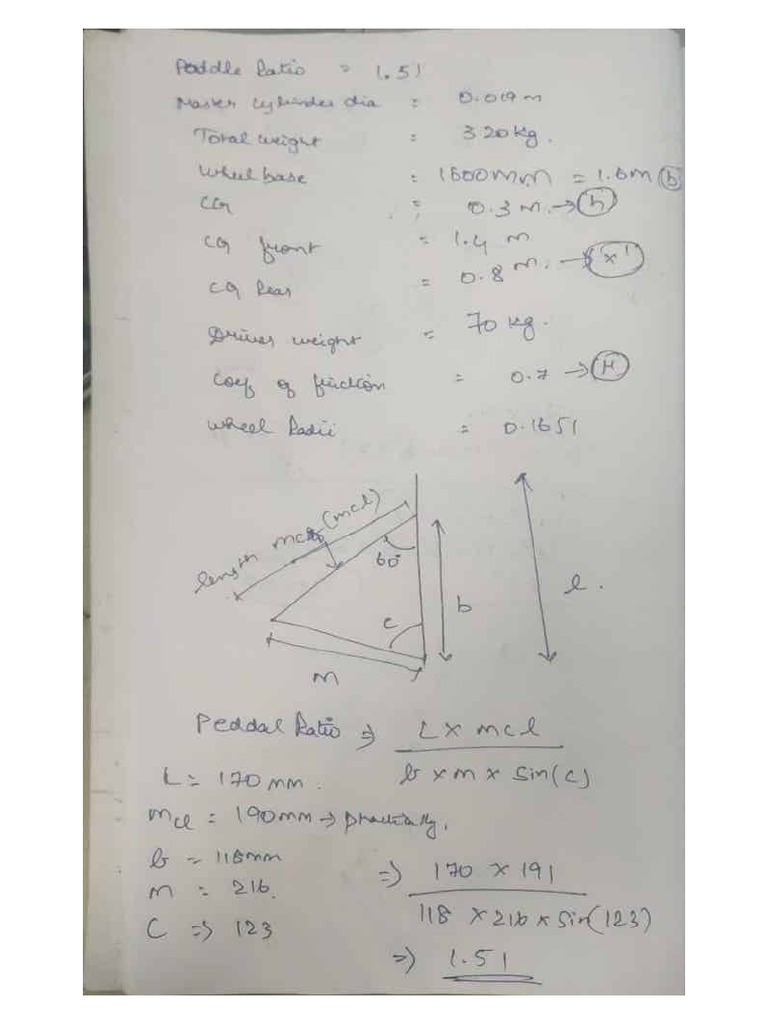 Peddle Ratio = 1.51
Master cylinder dia : 0.019 m
Total weight : 320 kg.
Wheel base : 1600mm = 1.6m (b)
CG : 0.3 m. → (h)
CG front = 1.4 m
CG Rear = 0.8 m. → (x)
Driver weight = 70 kg.
Coef of friction = 0.7 → (μ)
Wheel Radii = 0.1651
length (mcl)
60°
b
l.
c
m
Peddal Ratio ⇒ L x mcl
b x m x Sin(c)
L = 170 mm.
mcl = 190mm → practically.
b = 118mm
⇒ 170 x 191
m = 216.
118 x 216 x Sin(123)
C ⇒ 123
⇒ 1.51